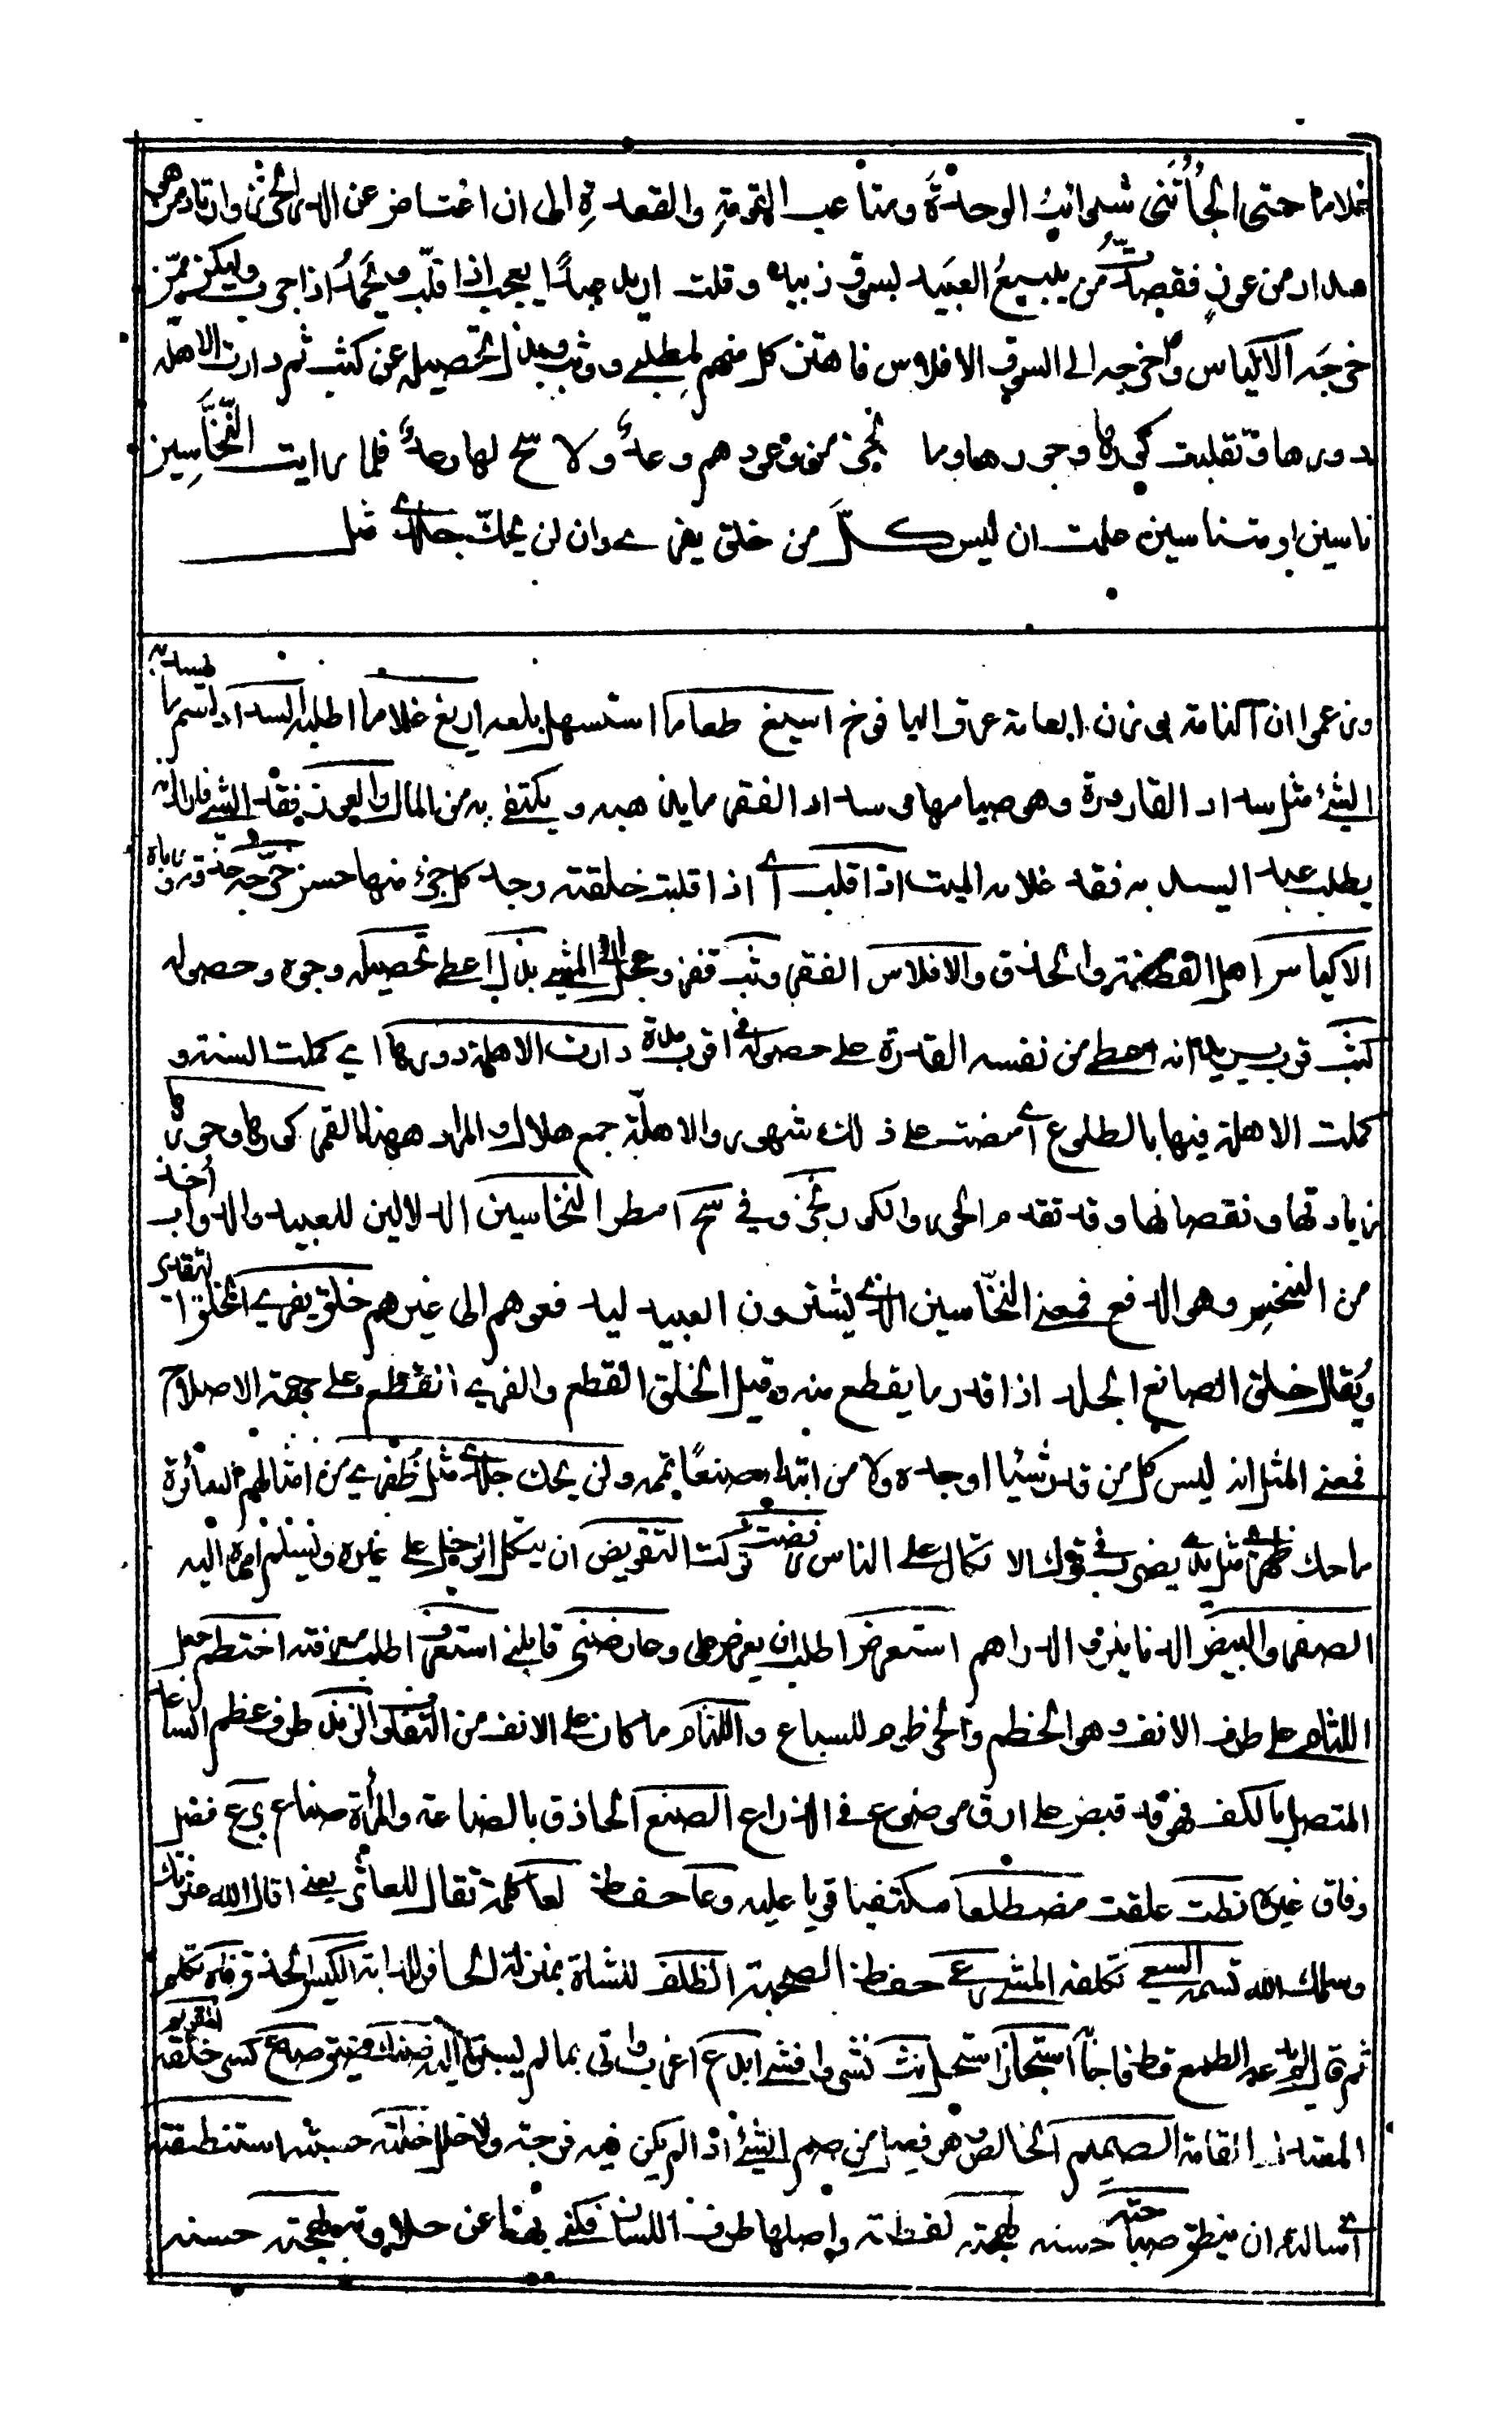 غلاما حتى الجأتني شوائب الوحدة ومتاعب القومة والقعدة الى ان اعتاض عن الدر الخرز وارتاد من هو
سداد من عوز فقصدت من يبيع العبيد بسوق زبيد وقلت اريد عبدا يعجب اذا قلب ويحمد اذا جرب وليكن ممن
خرجه الاكياس واخرجه الى السوق الافلاس فاهتز كل منهم لمطلبي ووثب وبذل تحصيله عن كثب ثم دارت الاهلة
دورها وتقلبت كورها وحورها وما نجز من وعودهم وعد ولا سح لها رعد فلما رايت النخاسين
ناسين او متناسين علمت ان ليس كل من خلق يفري وان لن يحك جلدي مثل
وزعموا ان اليافوخ اسيغ طعاما استسهل بلعه اريغ غلاما اطلبه السداد اسم ما
الشئ مثل سداد القارورة وهو صمامها وسداد الفقر ما يذهبه ويكتفى به من المال والعوز فقد الشئ
يطلب عبد اليسد به فقد غلامه الميت اذا قلب اي اذا قلبت خلقته وجد كل جزء منها حسن خرجه حذقه ورباه
الاكياس اهل الفطنة والحذق والافلاس الفقر وثب قفز وعجل المشي بذل اعطى تحصيله وجوده وحصوله
كثب قرب يريد انه اعطى من نفسه القدرة على حصوله في اقرب مدة دارت الاهلة دورها اي كملت السنة و
كملت الاهلة فيها بالطلوع اي مضت على ذلك شهور والاهلة جمع هلال والمراد ههنا القمر كورها وحورها
زيادتها ونقصانها وقد تقدم الحور والكور نجز وفي سح امطر النخاسين الدلالين للعبيد والدواب اخذ
من النخس وهو الدفع فمعنى النخاسين الذي يشترون العبيد ليدفعوهم الى غيرهم خلق يفري الخلق التقدير
ويقال خلق الصانع الجلد اذا قدر ما يقطع منه وقيل الخلق القطع والفري القطع على جهة الاصلاح
فمعنى المثل انه ليس كل من قدر شيئا اوجده ولا من ابتدا صنعا يتمه ولن يحك جلدي مثل ظفري من امثالهم السائرة
ما حك ظهري مثل يدي يضرب في ترك الاتكال على الناس رفضت تركت التفويض ان يتكل الرجل على غيره ويسلم امره اليه
الصفر والبيض الدنانير والدراهم استعرض اطلب ان يعرض علي وعارضني قابلني استعرف اطلب معرفته اختطم جعل
اللثام على طرف الانف وهو الخطم والخرطوم للسباع واللثام ما كان على الانف من الزند طرف عظم الساعد
المتصل بالكف فهو قد قبض على ارق موضوع في الذراع الصنع الحاذق بالصناعة والمرأة صناع برع فضل
وفاق غيره نطت علقت مضطلعا مكتفيا قويا عليه وعا حفظ لعا كلمة تقال للعاثر يعني اقال الله عثرتك
وسلمك الله تسمه السعي تكلفه المشي رعى حفظ الصحبة الظلف للشاة بمنزلة الحافر للدابة الكيس الحذق فاه تكلم
المعتدل القامة الصميم الخالص وهو فعيل من صمم الشئ اذا لم يكن فيه فرجة ولا خلل خلته حسبته استنطقته
اي سالته ان ينطق صباحته حسنه لهجته لفظاته واصلها طرف اللسان فكنى بهذا عن حلاوته بهجته حسنه